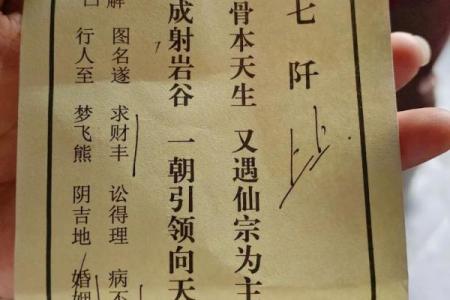 七阡
骨本天生 又遇仙宗为主
成射岩谷 一朝引领向天
解 图名遂 求财丰 讼得理 病不
曰 行人至 梦飞熊 阴吉地 婚姻